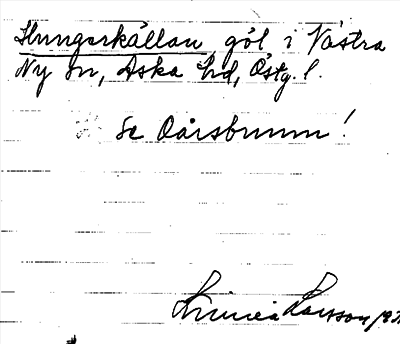 Hungerkällan, göl i Västra
Ny sn, Aska hd, Östg. l.
Se Oårsbrunn!
Linnea Larsson